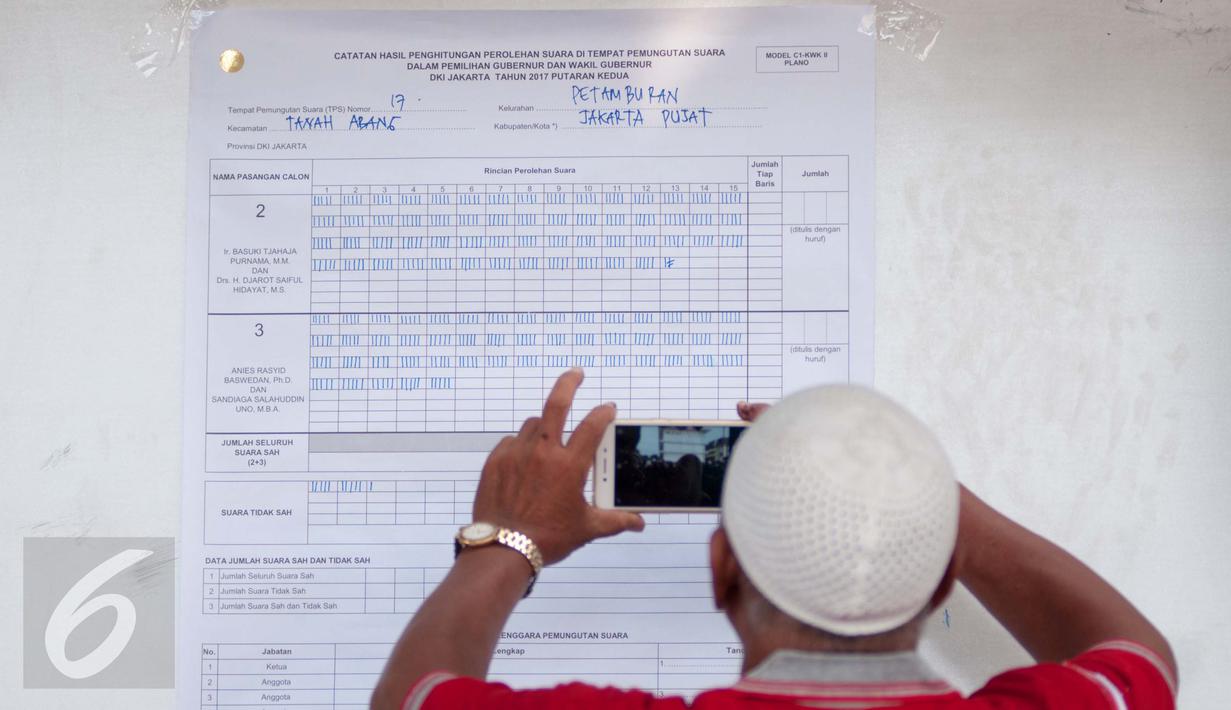 CATATAN HASIL PENGHITUNGAN PEROLEHAN SUARA DI TEMPAT PEMUNGUTAN SUARA
DALAM PEMILIHAN GUBERNUR DAN WAKIL GUBERNUR
DKI JAKARTA TAHUN 2017 PUTARAN KEDUA
MODEL C1-KWK II
PLANO
Tempat Pemungutan Suara (TPS) Nomor 17
Kelurahan PETAMBURAN
Kecamatan TANAH ABANG
Kabupaten/Kota *) JAKARTA PUJAT
Provinsi DKI JAKARTA
NAMA PASANGAN CALON
Rincian Perolehan Suara
Jumlah
Tiap
Baris
Jumlah
1 2 3 4 5 6 7 8 9 10 11 12 13 14 15
2
Ir. BASUKI TJAHAJA
PURNAMA, M.M.
DAN
Drs. H. DJAROT SAIFUL
HIDAYAT, M.S.
(ditulis dengan
huruf)
3
ANIES RASYID
BASWEDAN, Ph.D.
DAN
SANDIAGA SALAHUDDIN
UNO, M.B.A.
(ditulis dengan
huruf)
JUMLAH SELURUH
SUARA SAH
(2+3)
SUARA TIDAK SAH
DATA JUMLAH SUARA SAH DAN TIDAK SAH
1 Jumlah Seluruh Suara Sah
2 Jumlah Suara Tidak Sah
3 Jumlah Suara Sah dan Tidak Sah
PEMUNGUTAN SUARA
No. Jabatan
1 Ketua 1.
2 Anggota
3 Anggota 3.
6